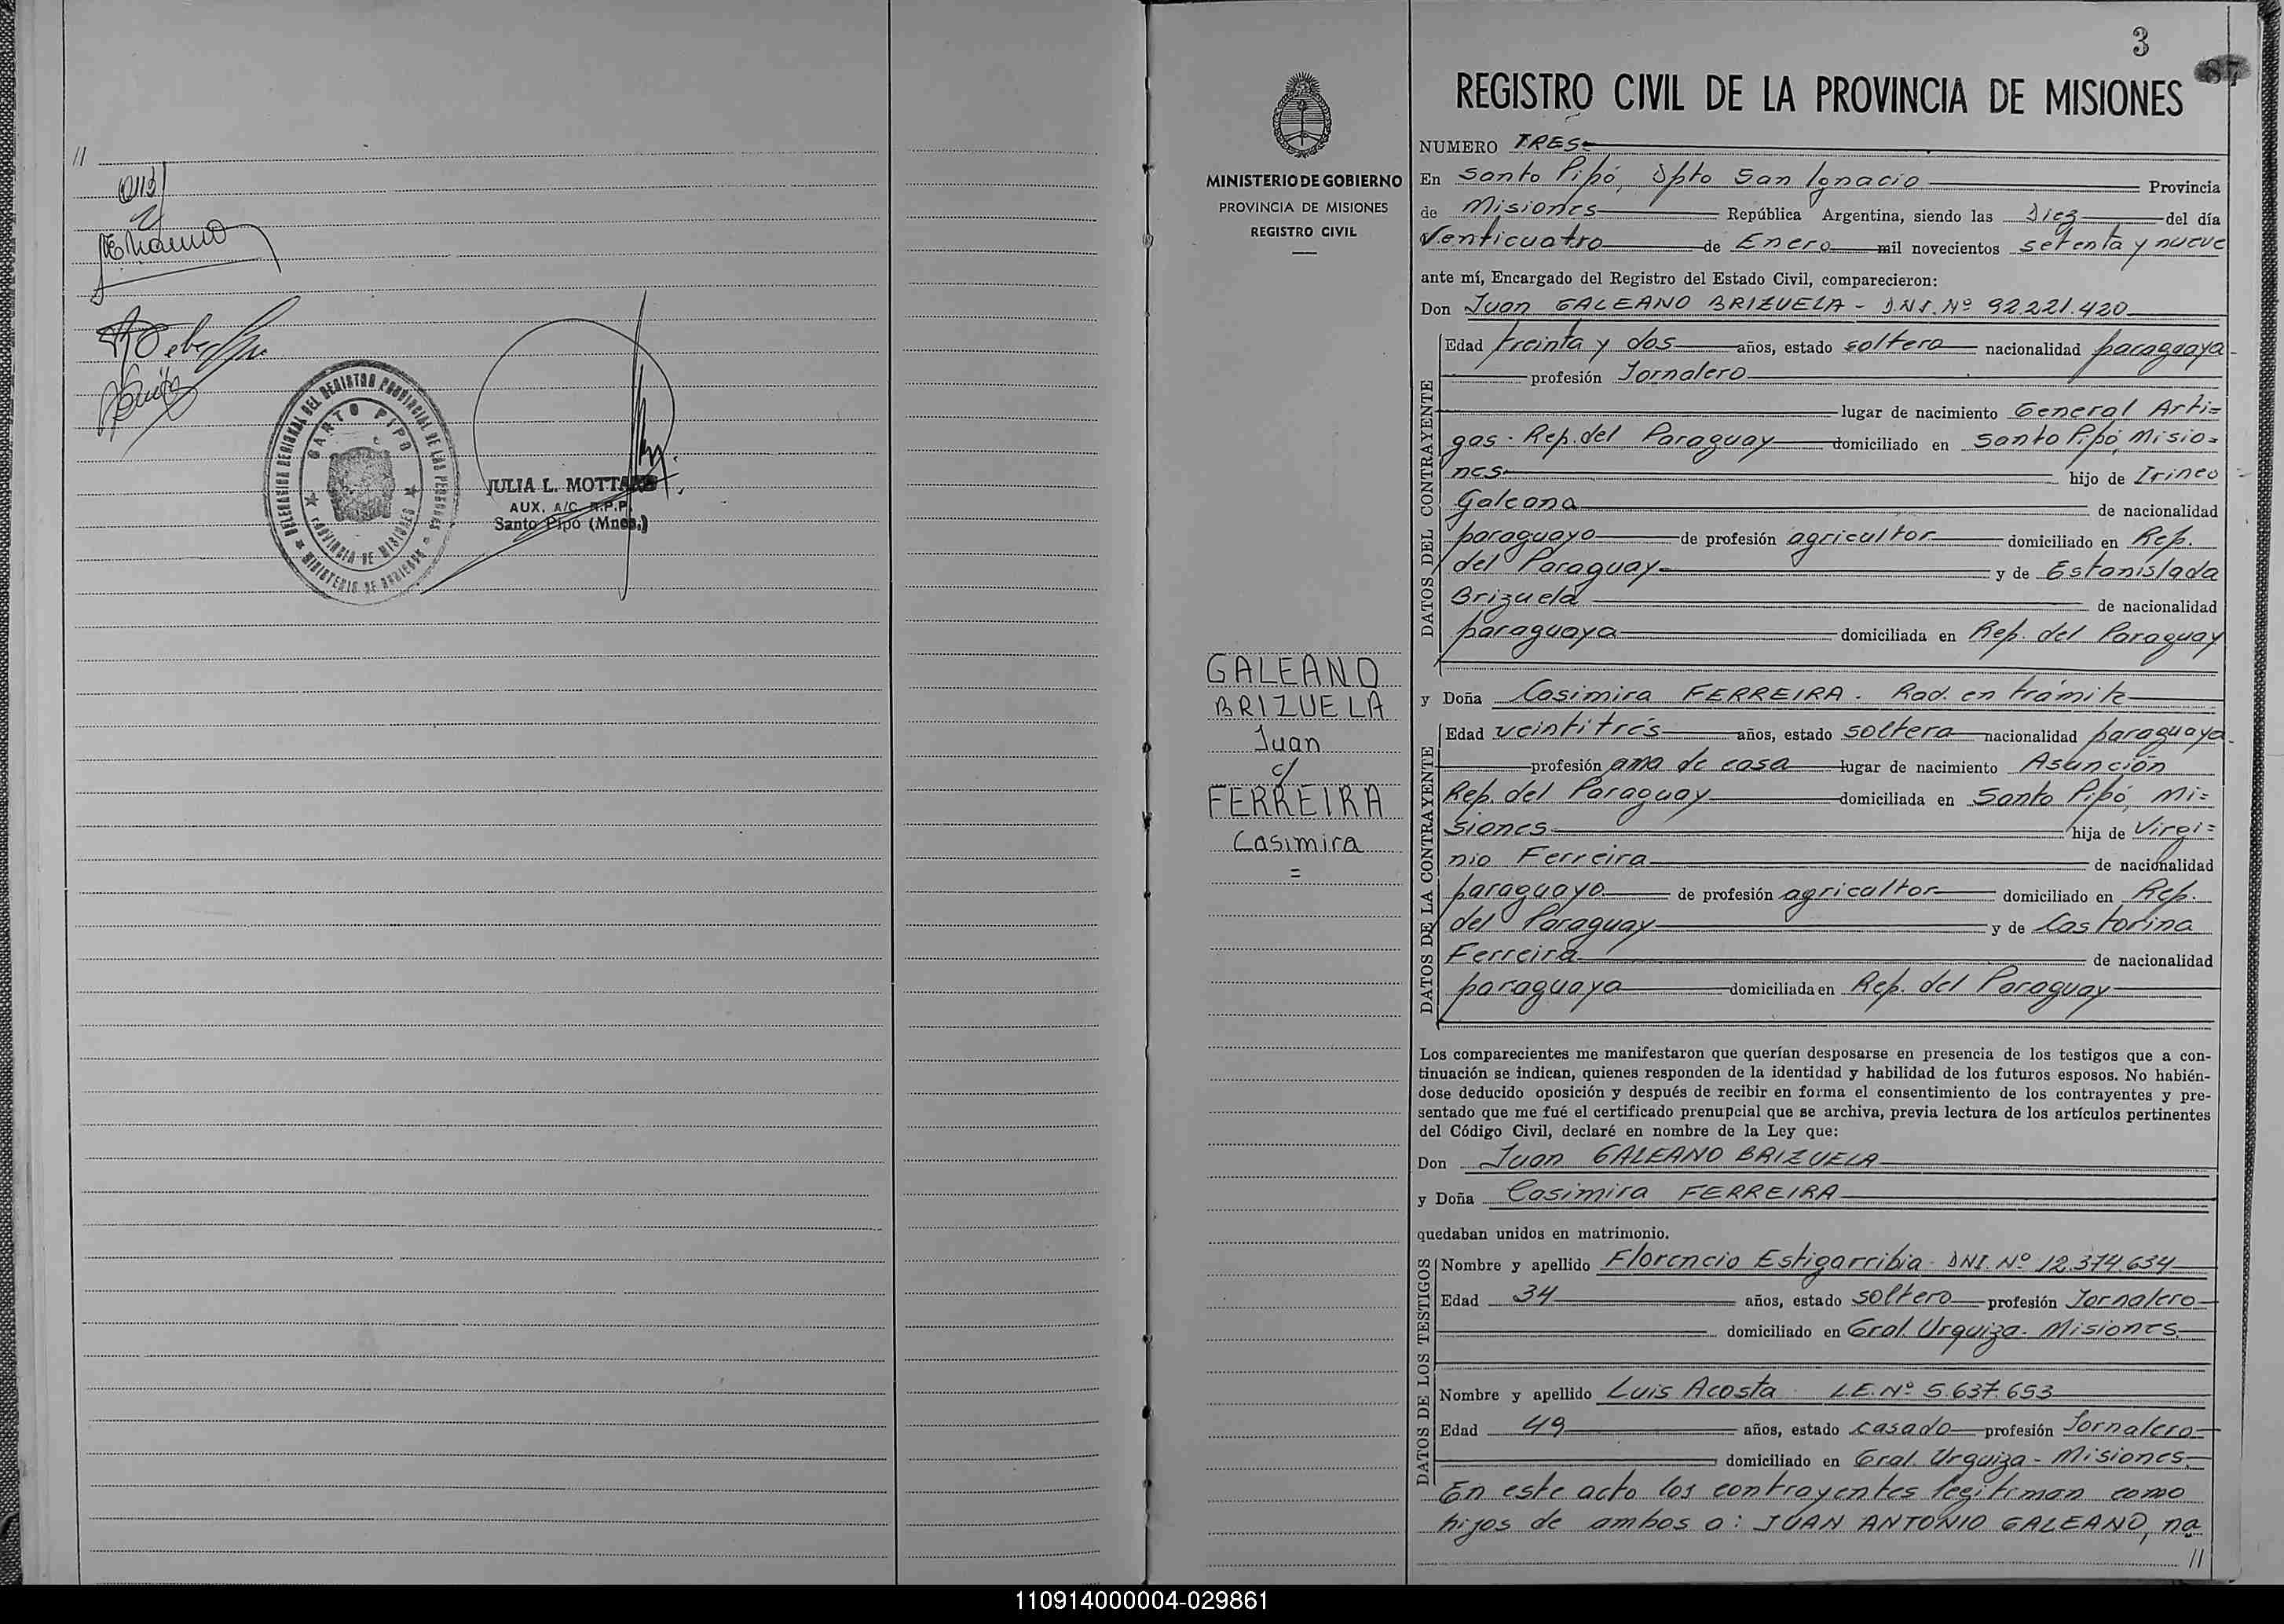 //
JULIA L. MOTTA
AUX. A/C. R.P.P.
Santo Pipó (Mnes.)
DELEGACION REGIONAL DEL REGISTRO PROVINCIAL DE LAS PERSONAS
SANTO PIPO
PROVINCIA DE MISIONES
MINISTERIO DE GOBIERNO
MINISTERIO DE GOBIERNO
PROVINCIA DE MISIONES
REGISTRO CIVIL
GALEANO
BRIZUELA
Juan
c/
FERREIRA
Casimira
=
3
87
REGISTRO CIVIL DE LA PROVINCIA DE MISIONES
NUMERO TRES=
En Santo Pipó, Dpto San Ignacio Provincia
de Misiones República Argentina, siendo las Diez del día
Venticuatro de Enero mil novecientos setenta y nueve
ante mí, Encargado del Registro del Estado Civil, comparecieron:
Don Juan GALEANO BRIZUELA - D.N.I. Nº 92.221.420
DATOS DEL CONTRAYENTE
Edad treinta y dos años, estado soltero nacionalidad paraguaya
profesión Jornalero
lugar de nacimiento General Arti=
gas - Rep. del Paraguay domiciliado en Santo Pipó, Misio=
nes hijo de Irineo
Galeano de nacionalidad
paraguayo de profesión agricultor domiciliado en Rep.
del Paraguay y de Estanislada
Brizuela de nacionalidad
paraguaya domiciliada en Rep. del Paraguay
y Doña Casimira FERREIRA. Rad. en trámite
DATOS DE LA CONTRAYENTE
Edad veintitrés años, estado soltera nacionalidad paraguaya
profesión ama de casa lugar de nacimiento Asunción
Rep. del Paraguay domiciliada en Santo Pipó, Mi=
siones hija de Virgi=
nio Ferreira de nacionalidad
paraguayo de profesión agricultor domiciliado en Rep.
del Paraguay y de Castorina
Ferreira de nacionalidad
paraguaya domiciliada en Rep. del Paraguay
Los comparecientes me manifestaron que querían desposarse en presencia de los testigos que a con-
tinuación se indican, quienes responden de la identidad y habilidad de los futuros esposos. No habién-
dose deducido oposición y después de recibir en forma el consentimiento de los contrayentes y pre-
sentado que me fué el certificado prenupcial que se archiva, previa lectura de los artículos pertinentes
del Código Civil, declaré en nombre de la Ley que:
Don Juan GALEANO BRIZUELA
y Doña Casimira FERREIRA
quedaban unidos en matrimonio.
DATOS DE LOS TESTIGOS
Nombre y apellido Florencio Estigarribia - DNI. Nº 12.374.634
Edad 34 años, estado soltero profesión Jornalero
domiciliado en Gral. Urquiza - Misiones.
Nombre y apellido Luis Acosta L.E. Nº 5.637.653
Edad 49 años, estado casado profesión Jornalero
domiciliado en Gral. Urquiza - Misiones.
En este acto los contrayentes legitiman como
hijos de ambos a: JUAN ANTONIO GALEANO, na
//
110914000004-029861